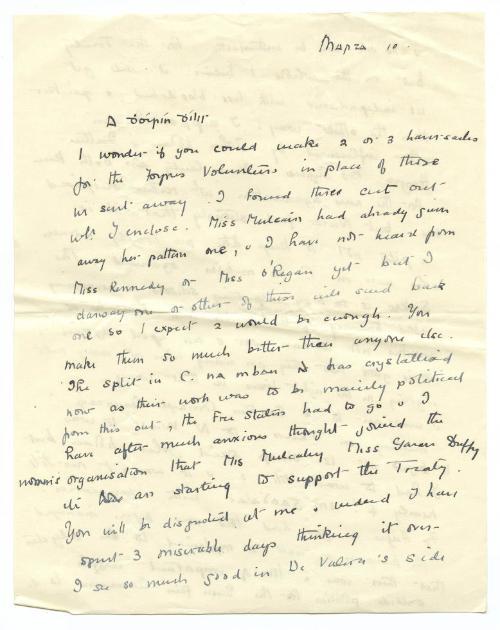 Márta 10.
A Dóirín Dílis
I wonder if you could make 2 or 3 haversacks
for the Foynes Volunteers in place of those
we sent away. I found three cut out
wh. I enclose. Miss Mulcair had already given
away her pattern one, & I have not heard from
Miss Kennedy or Miss O'Regan yet but I
daresay one or other of them will send back
one so I expect 2 would be enough. You
make them so much better than anyone else.
The split in C. na mban has crystallized
now as their work was to be mainly political
from this out, the Free Staters had to go & I
have after much anxious thought joined the
women's organisation that Mrs Mulcahy Miss Gavan Duffy
etc are starting to support the Treaty.
You will be disgusted at me & indeed I have
spent 3 miserable days thinking it over-
I see so much good in De Valera's side